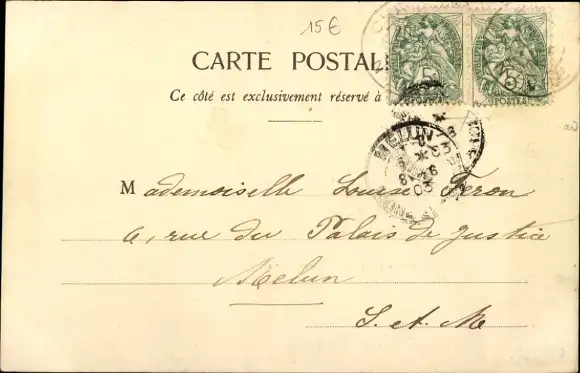 15€
CARTE POSTAL
Ce côté est exclusivement réservé à
5c 5c
POSTES POSTES
MELUN
Mademoiselle Louise Feron
6, rue du Palais de Justice
Melun
S. et M.